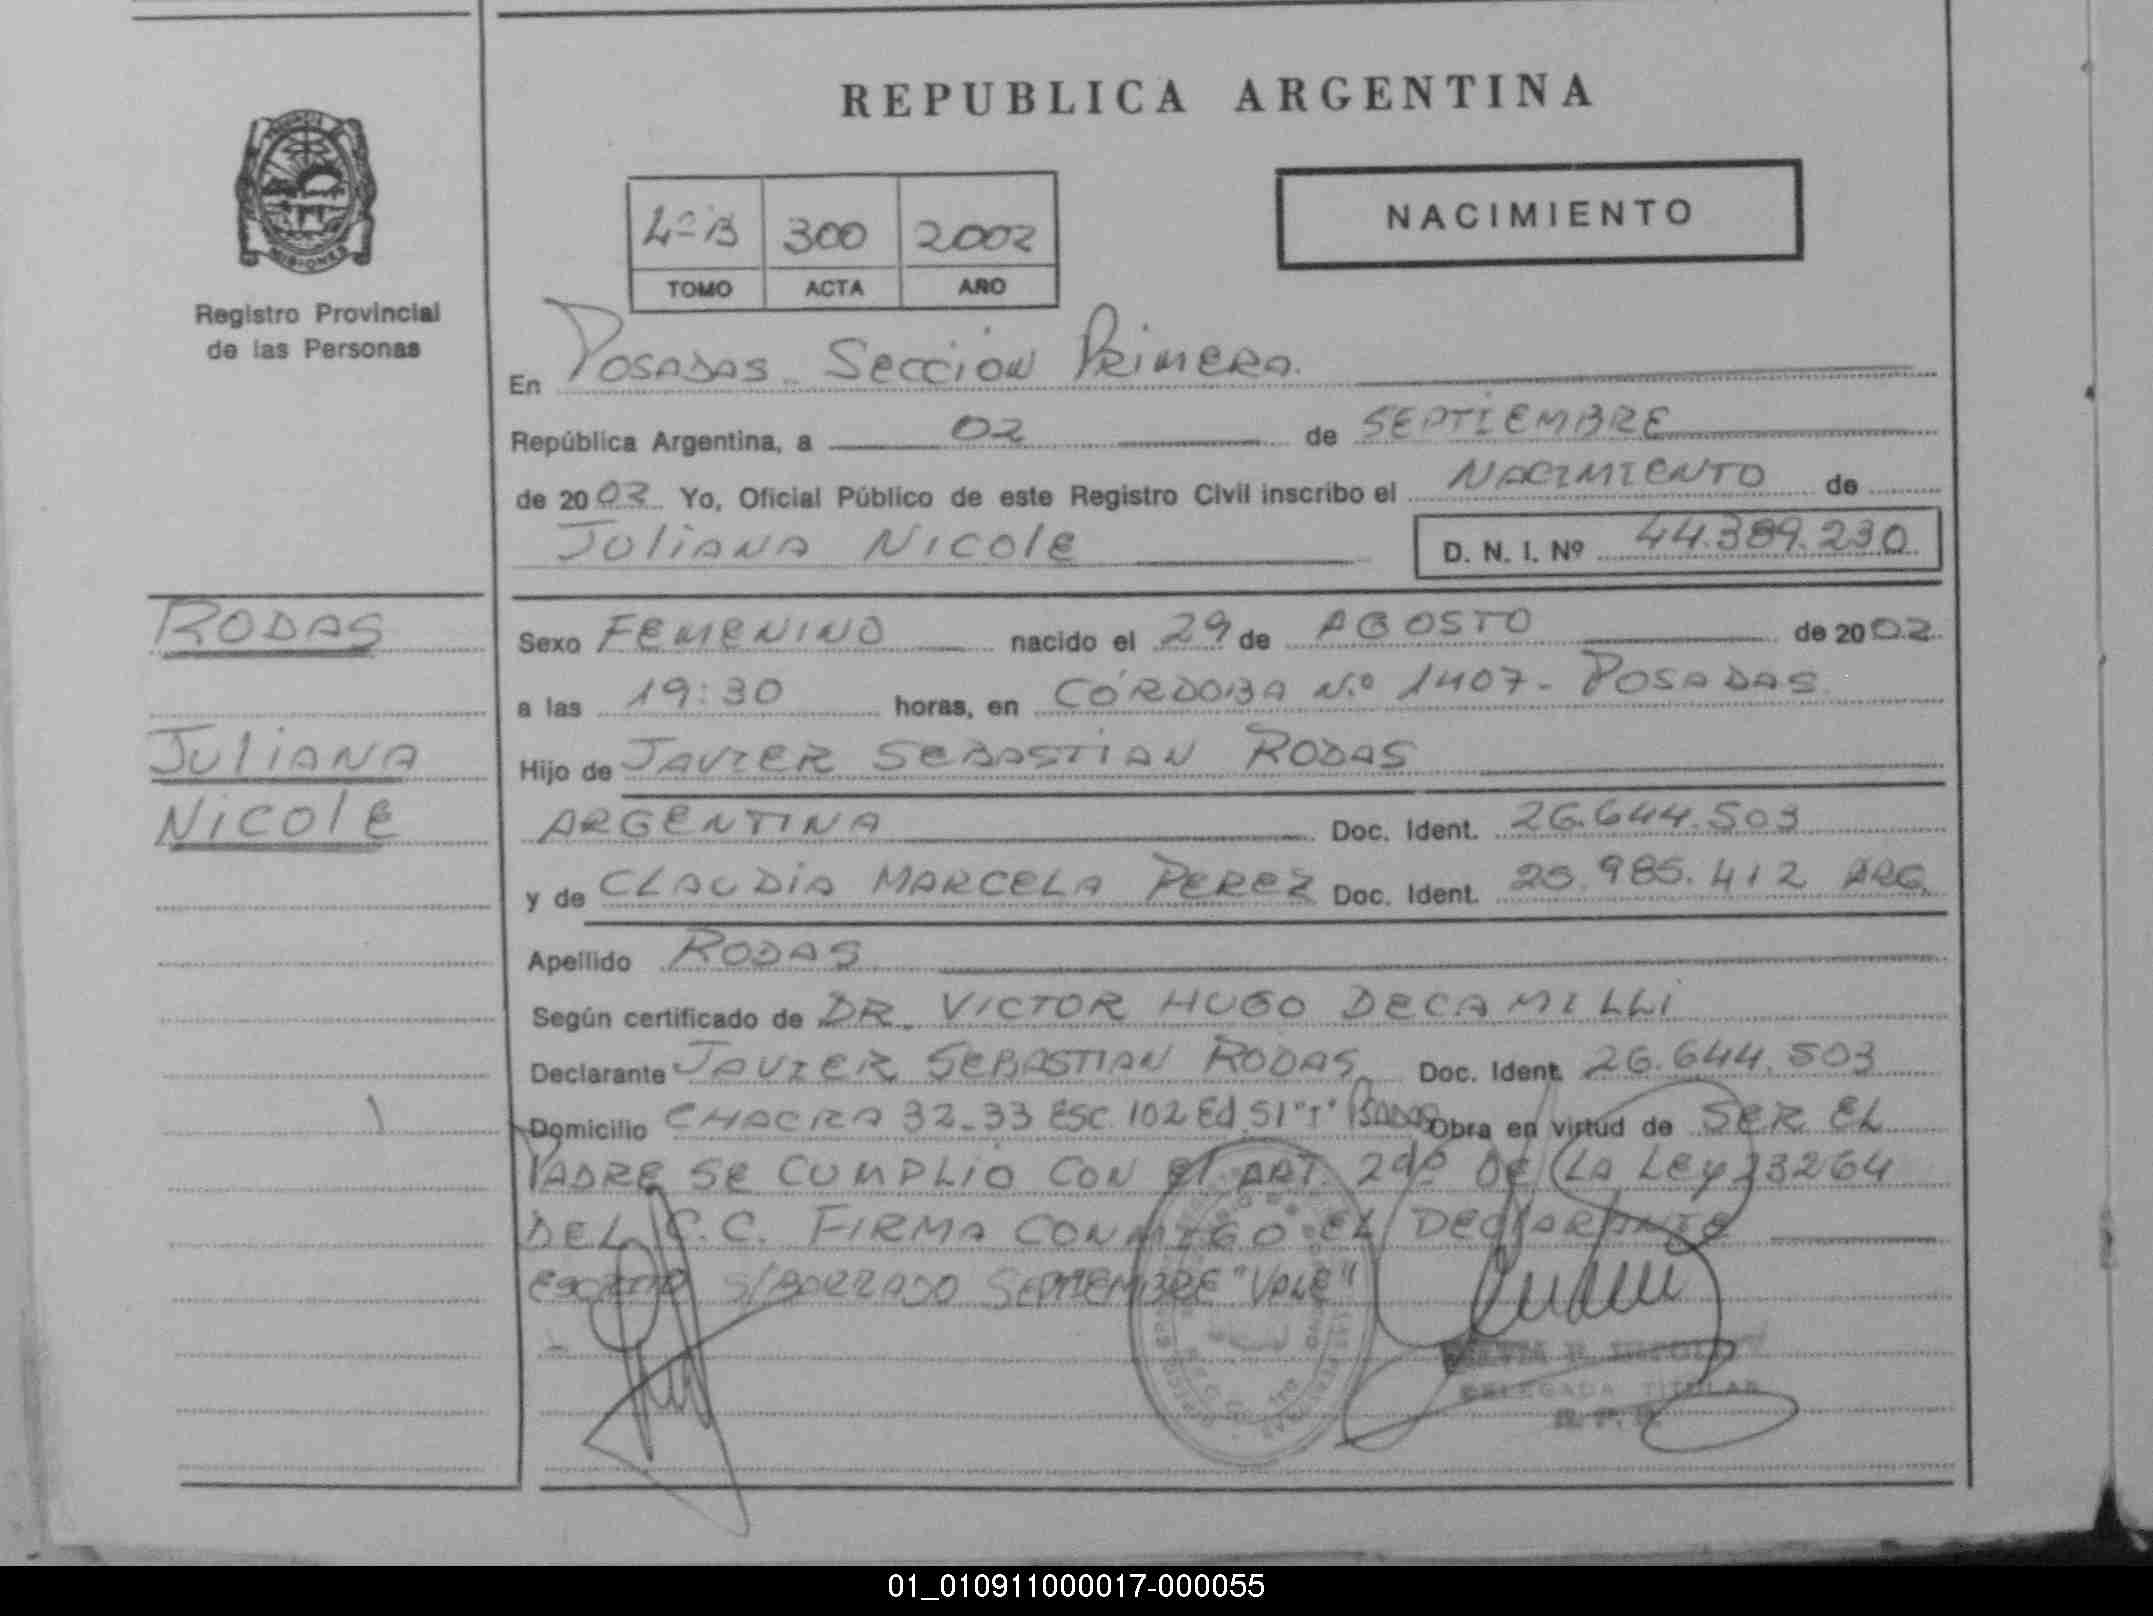 REPUBLICA ARGENTINA
NACIMIENTO
4º B 300 2002
TOMO ACTA AÑO
Registro Provincial
de las Personas
En Posadas Sección Primera
República Argentina, a 02 de SEPTIEMBRE
de 2002 Yo, Oficial Público de este Registro Civil inscribo el NACIMIENTO de
Juliana Nicole D. N. I. Nº 44.389.230
RODAS
Juliana
Nicole
Sexo FEMENINO nacido el 29 de AGOSTO de 2002
a las 19:30 horas, en CÓRDOBA N.º 1407 - POSADAS
Hijo de JAVIER SEBASTIAN RODAS
ARGENTINA Doc. Ident. 26.644.503
y de CLAUDIA MARCELA PEREZ Doc. Ident. 25.985.412 ARG.
Apellido RODAS
Según certificado de DR. VICTOR HUGO DECAMILLI
Declarante JAVIER SEBASTIAN RODAS Doc. Ident. 26.644.503
Domicilio CHACRA 32-33 ESC. 102 Ed. 51 "I" Obra en virtud de SER EL
PADRE SE CUMPLIO CON El ART. 29º DE LA Ley 23264
DEL C.C. FIRMA CONMIGO EL DECLARANTE
S/BORRADO SEPTIEMBRE "VALE"
DELEGADA TITULAR
R.P.P.
01_010911000017-000055